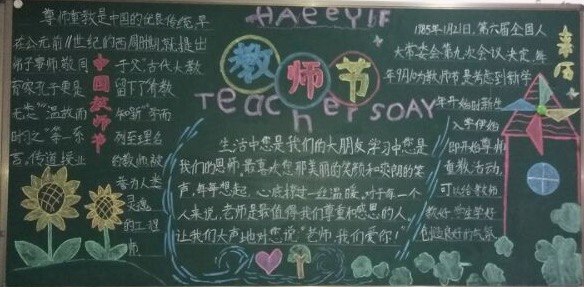 HAPPYIF
教师节
TeachersDAY
尊师重教是中国的优良传统,早
在公元前11世纪的西周时期,就提出
弟子事师,敬同
于父"古代大教
育家孔子更是
留下了"有教
无类""温故而
知新""学而
时习之"等一系
列至理名
言,传道授业
的教师被
誉为人类
灵魂
的工程
师
中国教师节
生活中您是我们的大朋友,学习中您是
我们的恩师,最喜欢您那美丽的笑颜和爽朗的笑
声,每每想起,心底掠过一丝温暖,对于每一个
人来说,老师是最值得我们尊重和感恩的人,
让我们大声地对您说"老师,我们爱你!"
来历
1985年1月21日,第六届全国人
大常委会第九次会议决定,每
年9月10为教师节是考虑到新学
年开始时新生
入学伊始
即开始尊师
重教活动,
可以给教师
教好,学生学好
创造良好的气氛